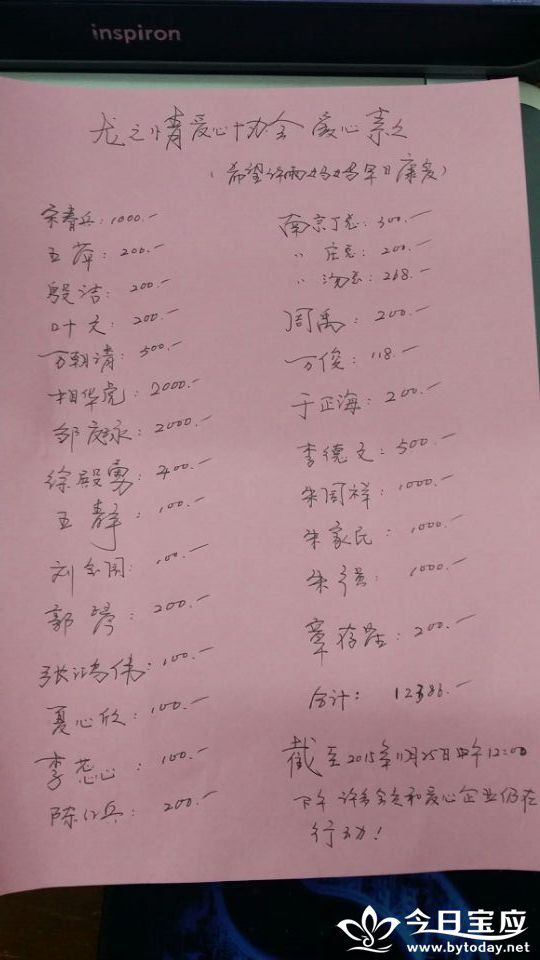 inspiron
龙之情爱心协会爱心募款
(希望许雨妈妈早日康复)
宋春兵:1000.-
王萍:200.-
殷洁:200.-
叶文:200.-
万朝清:500.-
相华虎:2000.-
邹庭永:2000.-
徐殿勇:400.-
王静:100.-
刘金国:100.-
郭 :200.-
张鸿伟:100.-
夏心欣:100.-
李 :100.-
陈 兵:200.-
南京丁总:300.-
〃 庄总:200.-
〃 汤总:268.-
周禹:200.-
万俊:118.-
于正海:200.-
李德文:500.-
朱周祥:1000.-
朱家民:1000.-
朱强:1000.-
章存 :200.-
合计:12386.-
截至2015年11月25日中午12:00
下午许多会员和爱心企业仍在
行动!
今日宝应
www.bytoday.net